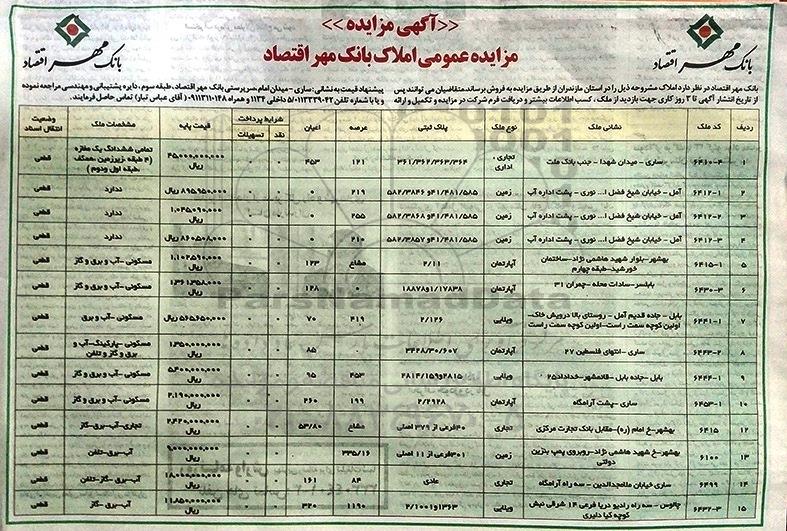 <<آگهی مزایده>>
مزایده عمومی املاک بانک مهر اقتصاد
بانک مهر اقتصاد
بانک مهر اقتصاد
بانک مهر اقتصاد در نظر دارد املاک مشروحه ذیل را در استان مازندران از طریق مزایده به فروش برساند.متقاضیان می توانند پس
از تاریخ انتشار آگهی تا ۳ روز کاری جهت بازدید از ملک ، کسب اطلاعات بیشتر و دریافت فرم شرکت در مزایده و تکمیل و ارائه
پیشنهاد قیمت به نشانی: ساری - میدان امام ،سرپرستی بانک مهر اقتصاد، طبقه سوم ، دایره پشتیبانی و مهندسی مراجعه نموده
و یا با شماره تلفن داخلی ۱۱۳۴ و همراه ۰۹۱۱۳۱۱۰۱۴۸ (آقای عباس تبار) تماس حاصل فرمایند.
ردیف کد ملک نشانی ملک نوع ملک پلاک ثبتی عرصه اعیان شرایط پرداخت نقد تسهیلات قیمت پایه مشخصات ملک وضعیت انتقال اسناد
۱ ۶۴۱۰-۴ ساری - میدان شهدا - جنب بانک ملت تجاری ، اداری ۳۶۱/۳۶۲/۳۶۳/۳۶۴ ۱۲۱ ۴۵۳ ۰ ۰ ۴۵,۰۰۰,۰۰۰,۰۰۰ ریال تمامی ششدانگ یک مغازه (۴ طبقه زیرزمین ،همکف ،طبقه اول ودوم ) قطعی
۲ ۶۴۱۲-۱ آمل - خیابان شیخ فضل ا... نوری - پشت اداره آب زمین ۴۱/۴۸۱/۵۸۵و ۵۸۲/۳۸۴۶ ۲۱۹ ۰ ۰ ۰ ۸۹۵,۹۵۰,۰۰۰ ریال ندارد قطعی
۳ ۶۴۱۲-۲ آمل - خیابان شیخ فضل ا... نوری - پشت اداره آب زمین ۴۱/۴۸۱/۵۸۵و ۵۸۲/۳۸۶۸ ۲۵۵ ۰ ۰ ۰ ۱,۰۴۵,۰۹۰,۰۰۰ ریال ندارد قطعی
۴ ۶۴۱۲-۳ آمل - خیابان شیخ فضل ا... نوری - پشت اداره آب زمین ۴۱/۴۸۱/۵۸۵و ۵۸۲/۳۸۵۷ ۲۱۰ ۰ ۰ ۰ ۸۶۰,۵۰۸,۰۰۰ ریال ندارد قطعی
۵ ۶۴۱۵-۱ بهشهر-بلوار شهید هاشمی نژاد-ساختمان خورشید-طبقه چهارم آپارتمان ۲/۱۱ مشاع ۱۲۳ ۰ ۰ ۱,۱۰۲,۵۹۰,۰۰۰ ریال مسکونی -آب و برق و گاز قطعی
۶ ۶۴۳۰-۳ بابلسر-سادات محله -چمران ۳۱ آپارتمان ۱/۱۷۸۳۸و۱۸۸۷۸ ۰ ۱۲۸ ۰ ۰ ریال مسکونی -آب و برق و گاز قطعی
۷ ۶۴۴۱-۱ بابل - جاده قدیم آمل - روستای بالا درویش خاک- اولین کوچه سمت راست-اولین کوچه سمت راست ویلایی ۲/۱۲۶ ۴۱۹ ۷۰ ۰ ۰ ۵۶۵,۶۵۰,۰۰۰ ریال مسکونی -آب و برق قطعی
۸ ۶۴۴۳-۲ ساری -انتهای فلسطین ۲۷ آپارتمان ۳۴۲۸/۳۰/۶۰۷ . ۸۵ ۰ ۰ ۱,۳۵۰,۰۰۰,۰۰۰ ریال مسکونی -پارکینگ-آب و برق و گاز و تلفن قطعی
۹ ۶۴۴۴-۱ بابل -جاده بابل -قائمشهر-خداداد۲۵ ویلایی ۲۸۱۵و۲۸۱۴/۱۵۹ ۴۵۳ ۹۵ ۰ ۰ ۵,۴۰۰,۰۰۰,۰۰۰ ریال مسکونی -آب و برق و گاز قطعی
۱۰ ۶۴۵۳-۱ ساری -پشت آرامگاه آپارتمان ۲/۲۹۲۸ ۱۹۹ ۲۶۰ ۰ ۰ ۲,۱۹۰,۰۰۰,۰۰۰ ریال مسکونی -آب و برق و گاز قطعی
۱۲ ۶۴۱۵ بهشهر-خ امام (ره)-مقابل بانک تجارت مرکزی تجاری ۴۰فرعی از ۳۷۹ اصلی مشاع ۵۳/۸۰ ۰ ۰ ۲,۴۲۰,۰۰۰,۰۰۰ ریال تجاری-آب-برق-گاز قطعی
۱۳ ۶۱۰۰ بهشهر-خ شهید هاشمی نژاد-روبروی پمپ بنزین دولتی زمین ۳۰۱فرعی از ۱۱ اصلی ۳۳۵/۱۶ ۰ ۰ ۹,۰۰۰,۰۰۰,۰۰۰ ریال آب-برق-تلفن قطعی
۱۴ ۶۴۹۹ ساری خیابان ملامجدالدین - سه راه آرامگاه تجاری عادی ۸۴ ۱۶۱ ۰ ۰ ۱۸,۰۰۰,۰۰۰,۰۰۰ ریال آب-برق-گاز-تلفن قطعی
۱۵ ۶۴۳۲-۳ چالوس - سه راه رادیو دریا فرعی ۱۴ شرقی نبش کوچه کیا دلیری ویلایی ۱۳۶۳و۲/۱۰۰۱ ۱۱۹۰ ۳۲۰ ۰ ۰ ۱۱,۸۵۰,۰۰۰,۰۰۰ ریال آب-برق -گاز قطعی
ParsNamadData